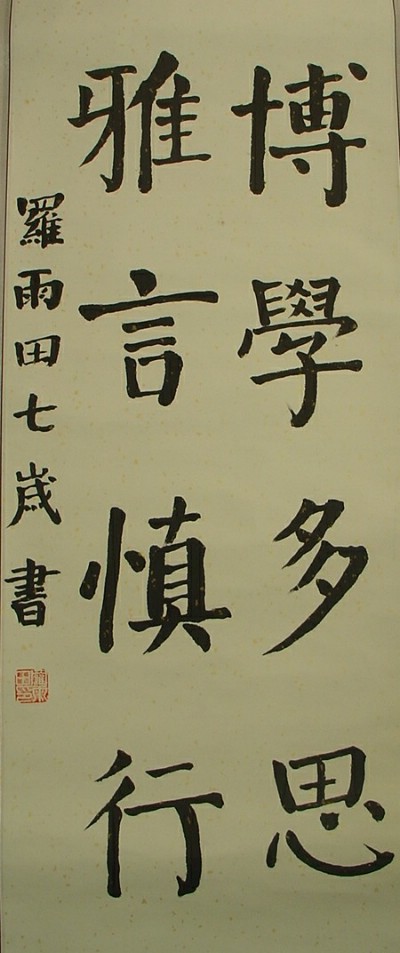 博學多思
雅言慎行
羅雨田七歲書